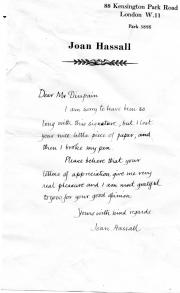 88 Kensington Park Road
London W.11
Park 5895
Joan Hassall
Dear Mr Dimpain
I am sorry to have been so
long with this signature, but I lost
your nice little piece of paper, and
then I broke my pen
Please believe that your
letters of appreciation give me very
real pleasure and I am most grateful
to you for your good opinion
Yours with kind regards
Joan Hassall